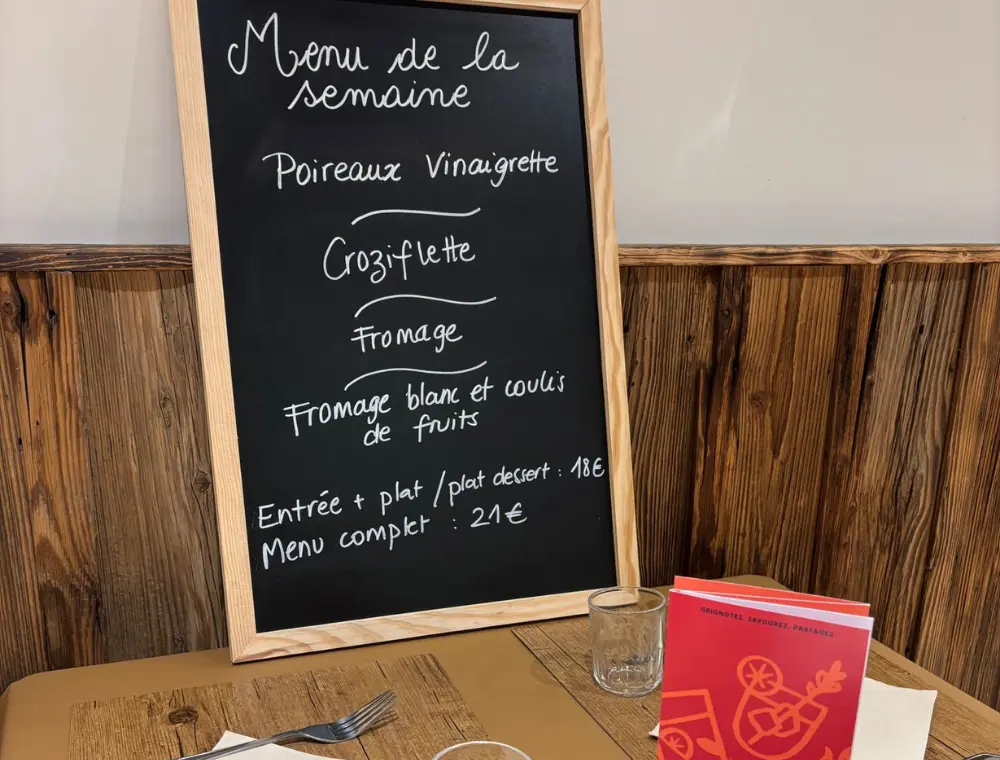 Menu de la
semaine
Poireaux Vinaigrette
Croziflette
Fromage
Fromage blanc et coulis
de fruits
Entrée + plat / plat dessert : 18€
Menu complet : 21€
GRIGNOTEZ, SAVOUREZ, PARTAGEZ